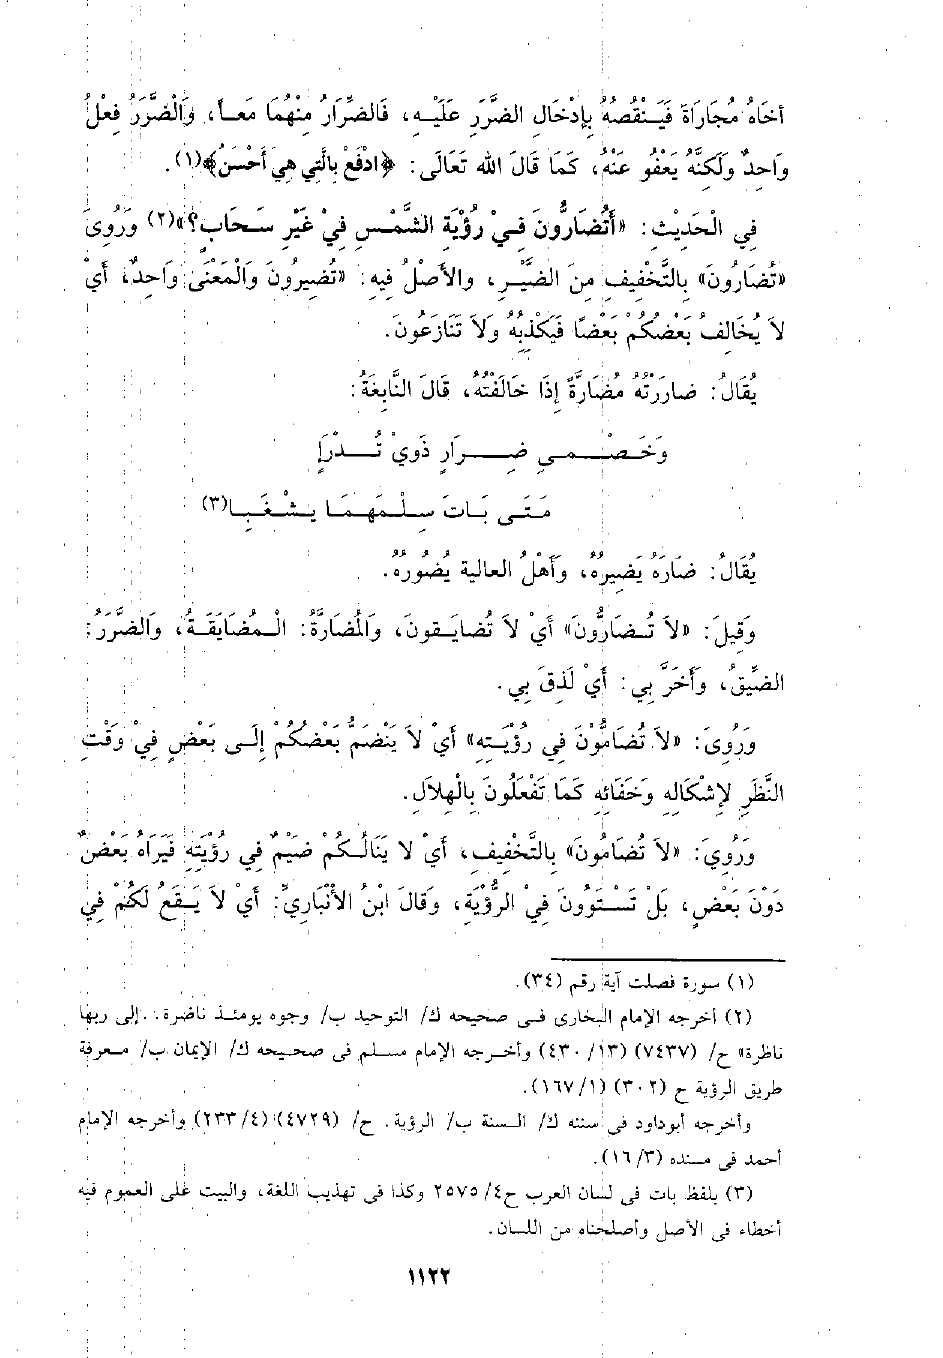 أخَاهُ مُجَارَاةً فَيَنْقصُهُ بِإدْخَال الضَّرَرَ عَلَيْهِ، فَالضِّرَارُ مِنْهُمَا مَعاً، وَالْضَّرَرُ فِعْلُ
وَاحِدٌ ولَكنَّهُ يَعْفُو عَنْهُ، كَمَا قَالَ الله تَعَالَى: ﴿ادْفَعْ بِالَّتِي هِيَ أحْسَنُ﴾(١).
فِي الْحَدِيْثِ: «أتُضَارُّونَ فِيْ رُؤْيَةِ الشَّمْسِ فِيْ غَيْرِ سَحَابٍ؟»(٢) وَرُوِىَ
«تُضَارُونَ» بِالتَّخْفِيفِ مِنَ الضَّيْرِ، والأصْلُ فِيهِ: «تُضيرُونَ وَالْمَعْنَى وَاحِدٌ، أىْ
لاَ يُخَالِفُ بَعْضُكُمْ بَعْضًا فَيَكْذِبُهُ وَلاَ تَنَازَعُونَ.
يُقَالُ: ضارَرْتُهُ مُضَارَّةً إذَا خَالَفْتُهُ، قَالَ النَّابِغَةُ:
وَخَصْمِى ضِرَارٍ ذَوِيْ تُدْرَإٍ
مَتَى بَاتَ سِلْمِهِمَا يَشْغَبِا(٣)
يُقَالُ: ضَارَهُ يَضِيرُهُ، وَأهْلُ العالية يَضُورُهُ.
وَقِيلَ: «لاَ تُضَارُّونَ» أيْ لاَ تُضايَقونَ، وَالمُضَارَّةُ: الْمُضَايَقَةُ، وَالضَّرَرُ:
الضِّيقُ، وَأضَرَّ بِي: أيْ لَذِقَ بِي.
وَرُوِىَ: «لاَ تُضَامُّوْنَ فِي رُؤْيَتِهِ» أيْ لاَ يَنْضَمُّ بَعْضُكُمْ إلَى بَعْضٍ فِيْ وَقْتِ
النَّظَرِ لإشْكَالِهِ وَخَفَائِهِ كَمَا تَفْعَلُونَ بِالْهِلاَلِ.
وَرُوِيَ: «لاَ تُضَامُونَ» بِالتَّخْفِيفِ، أىْ لا يَنَالُكُمْ ضَيْمٌ فِي رُؤْيَتِهِ فَيَرَاهُ بَعْضٌ
دَوْنَ بَعْضٍ، بَلْ تَسْتَوُونَ فِيْ الرُّؤْيَةِ، وَقالَ ابْنُ الأنْبَارِيِّ: أيْ لاَ يَقَعُ لَكُمْ فِيْ
(١) سورة فصلت آية رقم (٣٤).
(٢) أخرجه الإمام البخارى فى صحيحه ك/ التوحيد ب/ وجوه يومئذ ناضرة. .إلى ربها
ناظرة» ح/ (٧٤٣٧) (١٣/ ٤٣٠) وأخرجه الإمام مسلم فى صحيحه ك/ الإيمان ب/ معرفة
طريق الرؤية ح (٣٠٢) (١/ ١٦٧).
وأخرجه أبوداود فى سننه ك/ السنة ب/ الرؤية. ح/ (٤٧٢٩) (٤/ ٢٣٣) وأخرجه الإمام
أحمد فى مسنده (٣/ ١٦).
(٣) بلفظ بات فى لسان العرب ح٤/ ٢٥٧٥ وكذا فى تهذيب اللغة، والبيت على العموم فيه
أخطاء فى الأصل وأصلحناه من اللسان.
١١٢٢